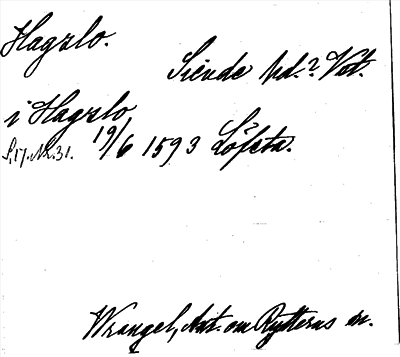 Hagslo.
Siende hd.? Vet.
i Hagslo
S.17. Nr. 31. 19/6 1593 Löfsta.
Wrangel, Ant. om Rytterns sn.